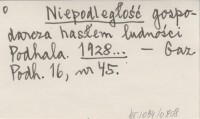 Niepodległość gospo-
darcza hasłem ludności
Podhala. 1928... — Gaz.
Podh. 16, nr 45.